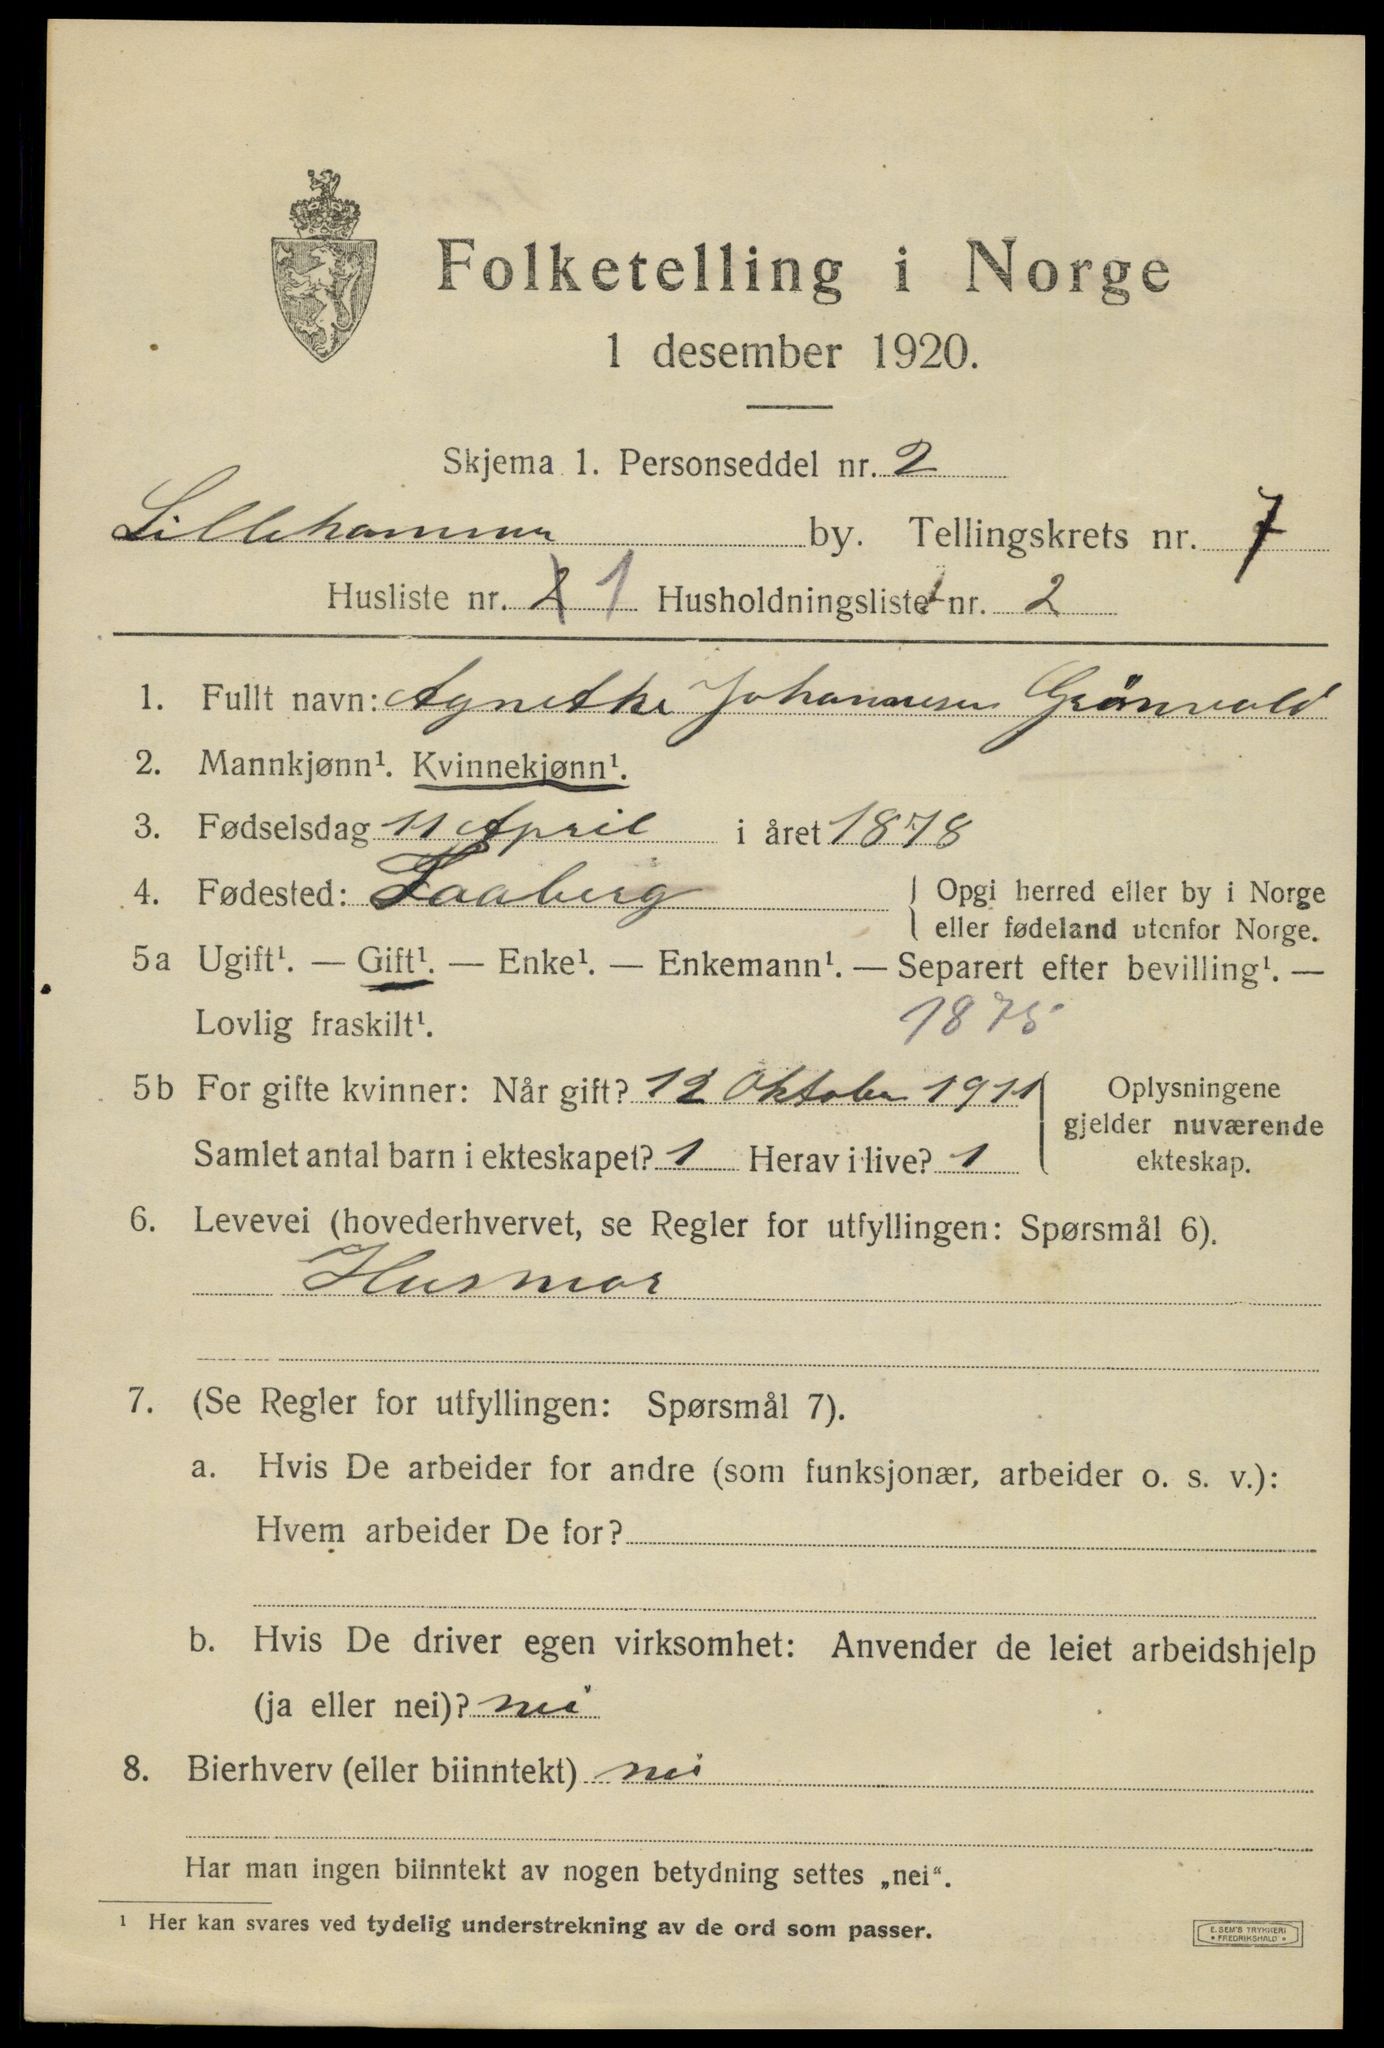 Folketelling i Norge
1 desember 1920.
Skjema 1. Personseddel nr. 2
Lillehammer by. Tellingskrets nr. 7
Husliste nr. 2 1 Husholdningsliste nr. 2
1. Fullt navn: Agnethe Johannesen Grönvold
2. Mannkjønn¹. Kvinnekjønn¹.
3. Fødselsdag 11 April i året 1878
4. Fødested: Faaberg { Opgi herred eller by i Norge
eller fødeland utenfor Norge.
5a Ugift¹. — Gift¹. — Enke¹. — Enkemann¹. — Separert efter bevilling¹. —
Lovlig fraskilt¹. 1875
5b For gifte kvinner: Når gift? 12 Oktober 1911 { Oplysningene
gjelder nuværende
Samlet antal barn i ekteskapet? 1 Herav i live? 1 ekteskap.
6. Levevei (hovederhvervet, se Regler for utfyllingen: Spørsmål 6).
Husmor
7. (Se Regler for utfyllingen: Spørsmål 7).
a. Hvis De arbeider for andre (som funksjonær, arbeider o. s. v.):
Hvem arbeider De for?
b. Hvis De driver egen virksomhet: Anvender de leiet arbeidshjelp
(ja eller nei)? nei
8. Bierhverv (eller biinntekt) nei
Har man ingen biinntekt av nogen betydning settes „nei“.
¹ Her kan svares ved tydelig understrekning av de ord som passer.
E. SEM'S TRYKKERI
• FREDRIKSHALD •